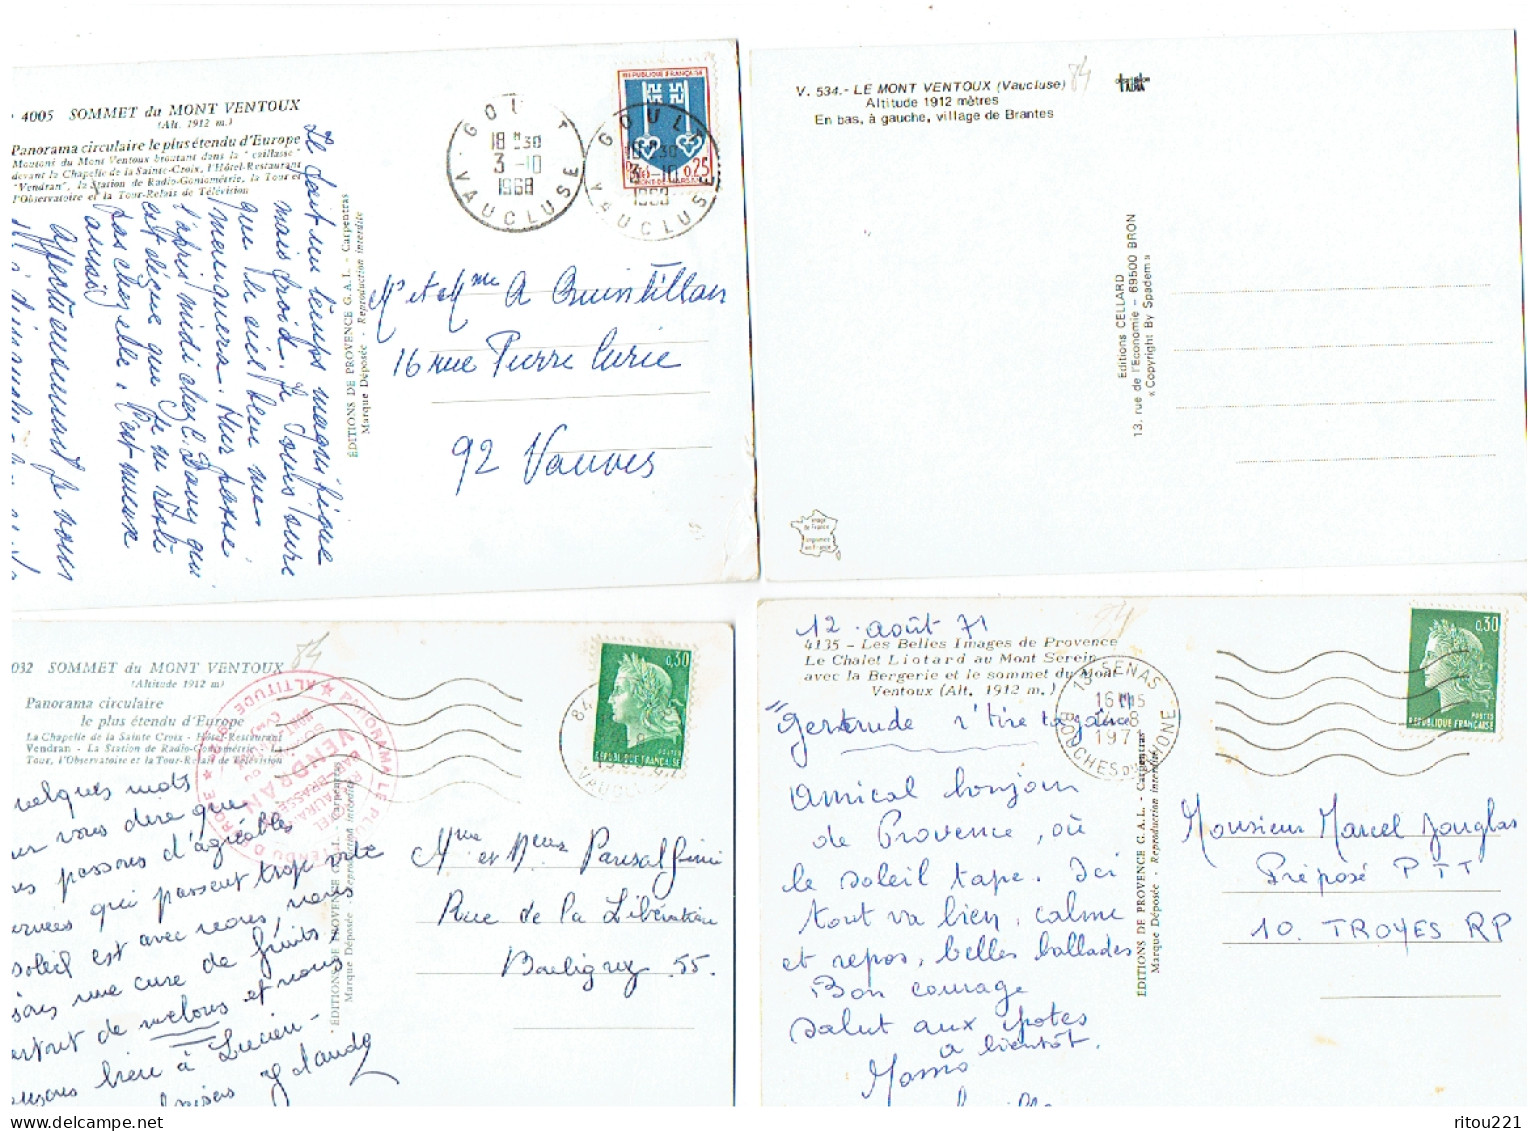 4005 SOMMET du MONT VENTOUX
(Alt. 1912 m.)
Panorama circulaire le plus étendu d'Europe
Moutons du Mont Ventoux broutant dans la "caillasse"
devant la Chapelle de la Sainte-Croix, l'Hôtel-Restaurant
"Vendran", la Station de Radio-Goniométrie, la Tour et
l'Observatoire et la Tour-Relais de Télévision
Il fait un temps magnifique
mais froid. Je suis sûre
que le ciel bleu me
manquera. Hier passé
l'après midi chez C. Dany qui
est déçue que je ne reste
pas chez elle. C'est mieux
ainsi
Affectueusement je vous
ÉDITIONS DE PROVENCE G.A.L. - Carpentras
Marque Déposée - Reproduction interdite
GOULT
18 H 30
3 -10
1968
VAUCLUSE
GOULT
18 H 30
3 -10
1968
VAUCLUSE
REPUBLIQUE FRANÇAISE
0,25
MONT-DE-MARSAN
Mr et Mme A Quintillan
16 rue Pierre Curie
92 Vanves
V. 534.- LE MONT VENTOUX (Vaucluse)
Altitude 1912 mètres
En bas, à gauche, village de Brantes
84
Editions CELLARD
13, rue de l'Economie - 69500 BRON
« Copyright By Spadem »
image
de France
imprimée
en France
032 SOMMET du MONT VENTOUX
(Altitude 1912 m)
84
Panorama circulaire
le plus étendu d'Europe
La Chapelle de la Sainte Croix - Hôtel-Restaurant
Vendran - La Station de Radio-Goniométrie - La
Tour, l'Observatoire et la Tour-Relais de Télévision
VENDRAN
uelques mots
ur vous dire que
us passons d'agréables
urnées qui passent trop vite
soleil est avec nous, nous
sons une cure de fruits
urtout de melons et nous
ensons bien à Lucien -
baisers Yolande
ÉDITIONS DE PROVENCE G.A.L. - Carpentras
Marque Déposée - Reproduction interdite
84
VAUCLUSE
0,30
POSTES
REPUBLIQUE FRANÇAISE
Mme et Mr
Rue de la Libération
55.
12 août 71
84
4135 - Les Belles Images de Provence
Le Chalet Liotard au Mont Serein
avec la Bergerie et le sommet du Mont
Ventoux (Alt. 1912 m.)
"Gertrude
Amical bonjour
de Provence, où
le soleil tape. Ici
tout va bien, calme
et repos, belles ballades
Bon courage
Salut aux potes
à bientôt.
ÉDITIONS DE PROVENCE G.A.L. - Carpentras
Marque Déposée - Reproduction interdite
13 SENAS
16 H 15
-8
197
BOUCHES DU RHONE
0,30
POSTES
REPUBLIQUE FRANÇAISE
Monsieur Marcel Jouglas
Préposé PTT
10. TROYES RP
ritou221